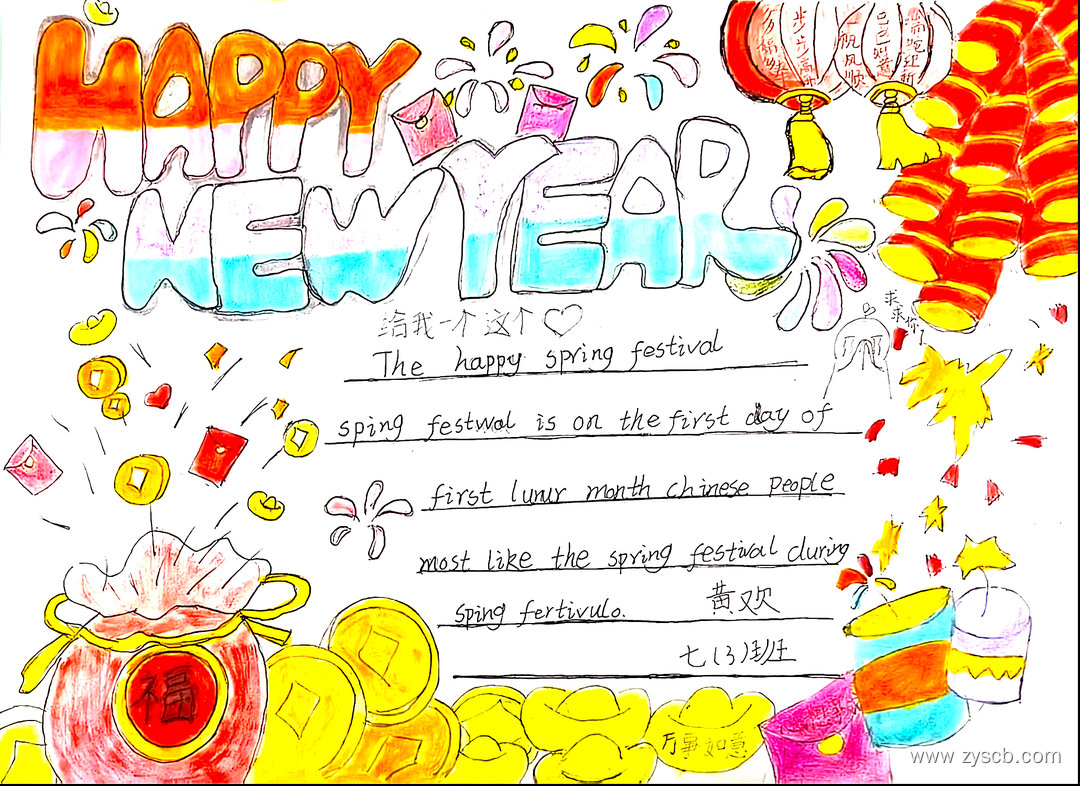 HAPPY
NEW YEAR
万福
步步高升
一帆风顺
给我一个这个
求求你了
The happy spring festival
sping festwal is on the first day of
first lunur month chinese people
most like the spring festival cluring
sping fertivulo.
黄欢
七(3)班
福
万事如意
www.zyscb.com